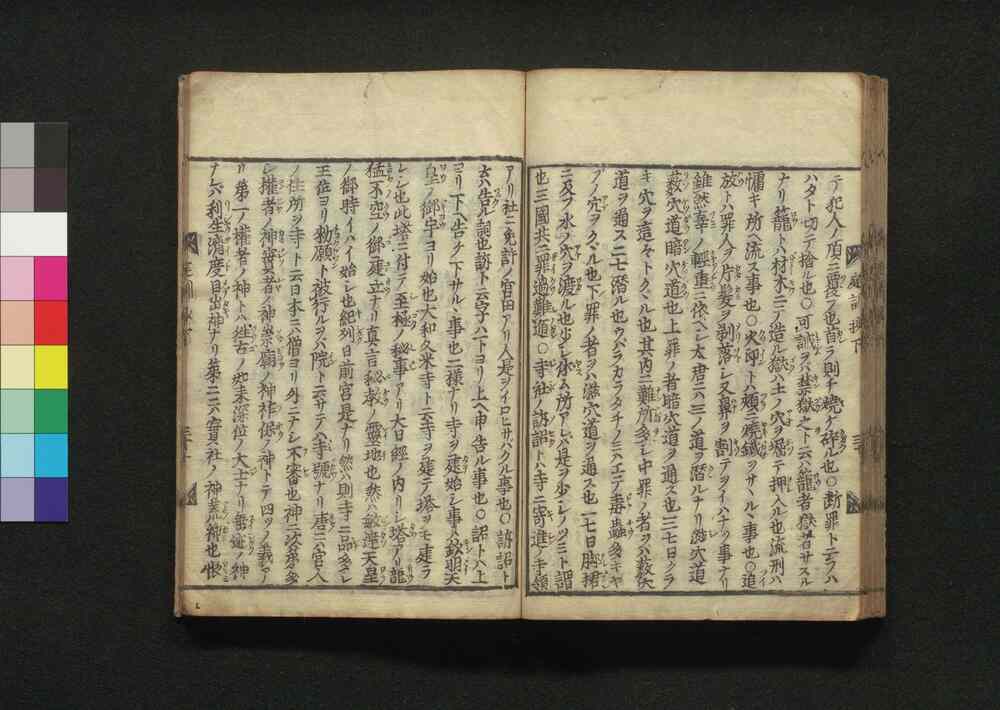 テ犯人ノ頂ニ置テ也首ラ則チ燒グ碎ル也○断罪トテヲハ
ハタト切テ捨ル也○可誡ヲハ禁獄之ト云ハ籠者獄者サスル
ナリ籠トハ材木ニテ造ル獄ハ土ノ穴ヲ堀テ押入ル也流刑ハ
キ所ヘ流ス事也○火印トハ頰ニ燒鐵ヲサヽルヽ事也○追
放トハ罪人ヲ片髪ヲ剃落シ又鼻ヲ割テヲイハナツ事ナリ
雖然辜ノ輕重ニ依ヘシ太唐ニハ三ノ道ヲ潜ルナリ
藪穴道暗穴道也上罪ノ者暗穴道ヲ通ス也三七日クラ
キ穴ヲ這々トクヽル也其内ニ難所多シ中罪ノ者ヲハ藪穴
道ヲ通ス二七潜ル也ウバラカラタチノミハエテ毒蟲多キヤ
ブノ穴ヲクヾル也下罪ノ者ヲハ穴道ヲ通ス也一七日
ニ及ブ水ノ穴ヲ渡ル也少シ休ム所アレハ是ヲ少シノクミト謂
也三國共ニ罪過難道○寺社ノ訴詔トハ寺ニ寄進ノ寺領
アリ社ニ免許ノ官田アリ人是ヲイロヒサハクル事也○訴詔ト
云ハ告ル詞也訴ト云字ハ下ヨリ上ヘ申告ル事也○詔トハ上
ヨリ下ヘ告ケ下サルヽ事也二樣ナリ寺ヲ建始シ事ハ欽明天
皇ノ御宇ヨリ始也大和久米寺ト云寺ヲ建テ塔ヲモ建ラ
レシ也此塔ニ付テ至極ノ秘事アリ大日經ノ内リニ塔アリ龍
猛不空ノ御建立ナリ真言秘孝ノ靈地也然ハ敏達天皇
ノ御時イハイ始シ也紀列日前宮是ナリ然ハ則寺ニ品多シ
王位ヨリ勅願ト被行ルヲハ院ト云サテハ寺號ナリ唐ニハ官人
ノ住所ヲ寺ト云日本ニハ僧ヨリ外ニナシ不審也神ニ次第多
シ權者ノ神實者ノ神宗廟ノ神ノ神トテ四ツノ義アー
リ第一ノ權者ノ神トハ往古ノ如来深位ノ大士ナリノ神
ナトハ利生濟度目出神ナリ第二ニハ實社ノ神也